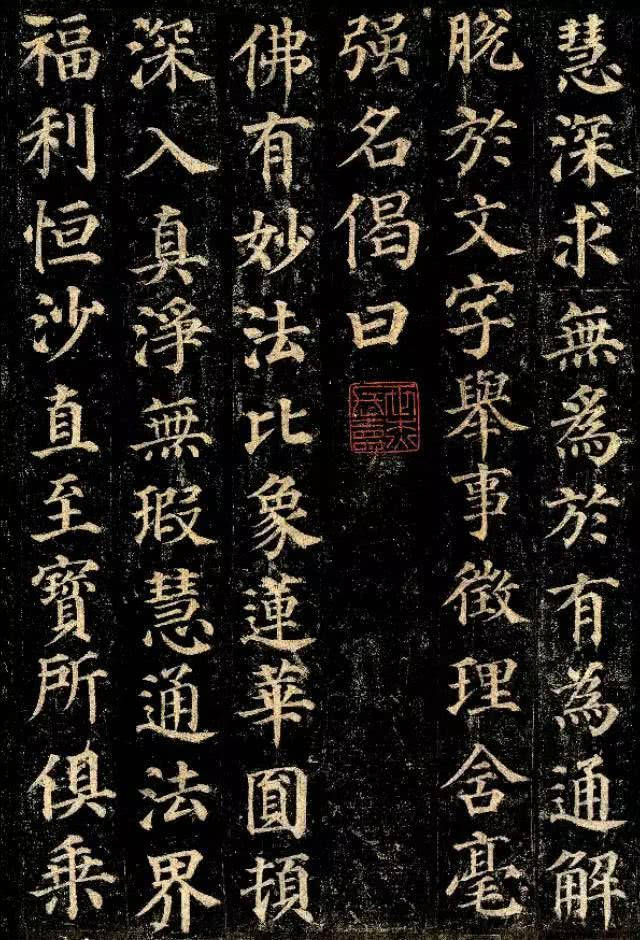 慧深求無為於有為通解
脫於文字舉事徵理含毫
强名偈曰
佛有妙法比象蓮華圓頓
深入真淨無瑕慧通法界
福利恒沙直至寶所俱乗